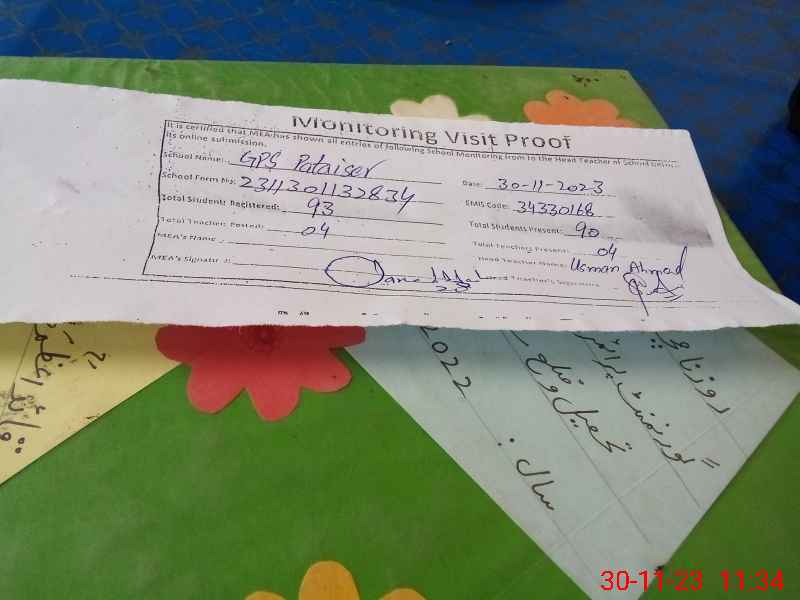 Monitoring Visit Proof
It is certified that MEA has shown all entries of following School Monitoring from to the Head Teacher of School before
its online submission.
School Name: GPS Pataiser
Date: 30-11-2023
School Form No: 2311301132834
EMIS Code: 34330168
Total Students Registered: 93
Total Students Present: 90
Total Teachers Posted: 04
Total Teachers Present: 04
MEA's Name:
Head Teacher Name: Usman Ahmad
MEA's Signature:
Head Teacher's Signature
2022
سال
تحصیل و ضلع
گورنمنٹ پرائمری
روزنامچہ
قائد اعظم
30-11-23 11:34